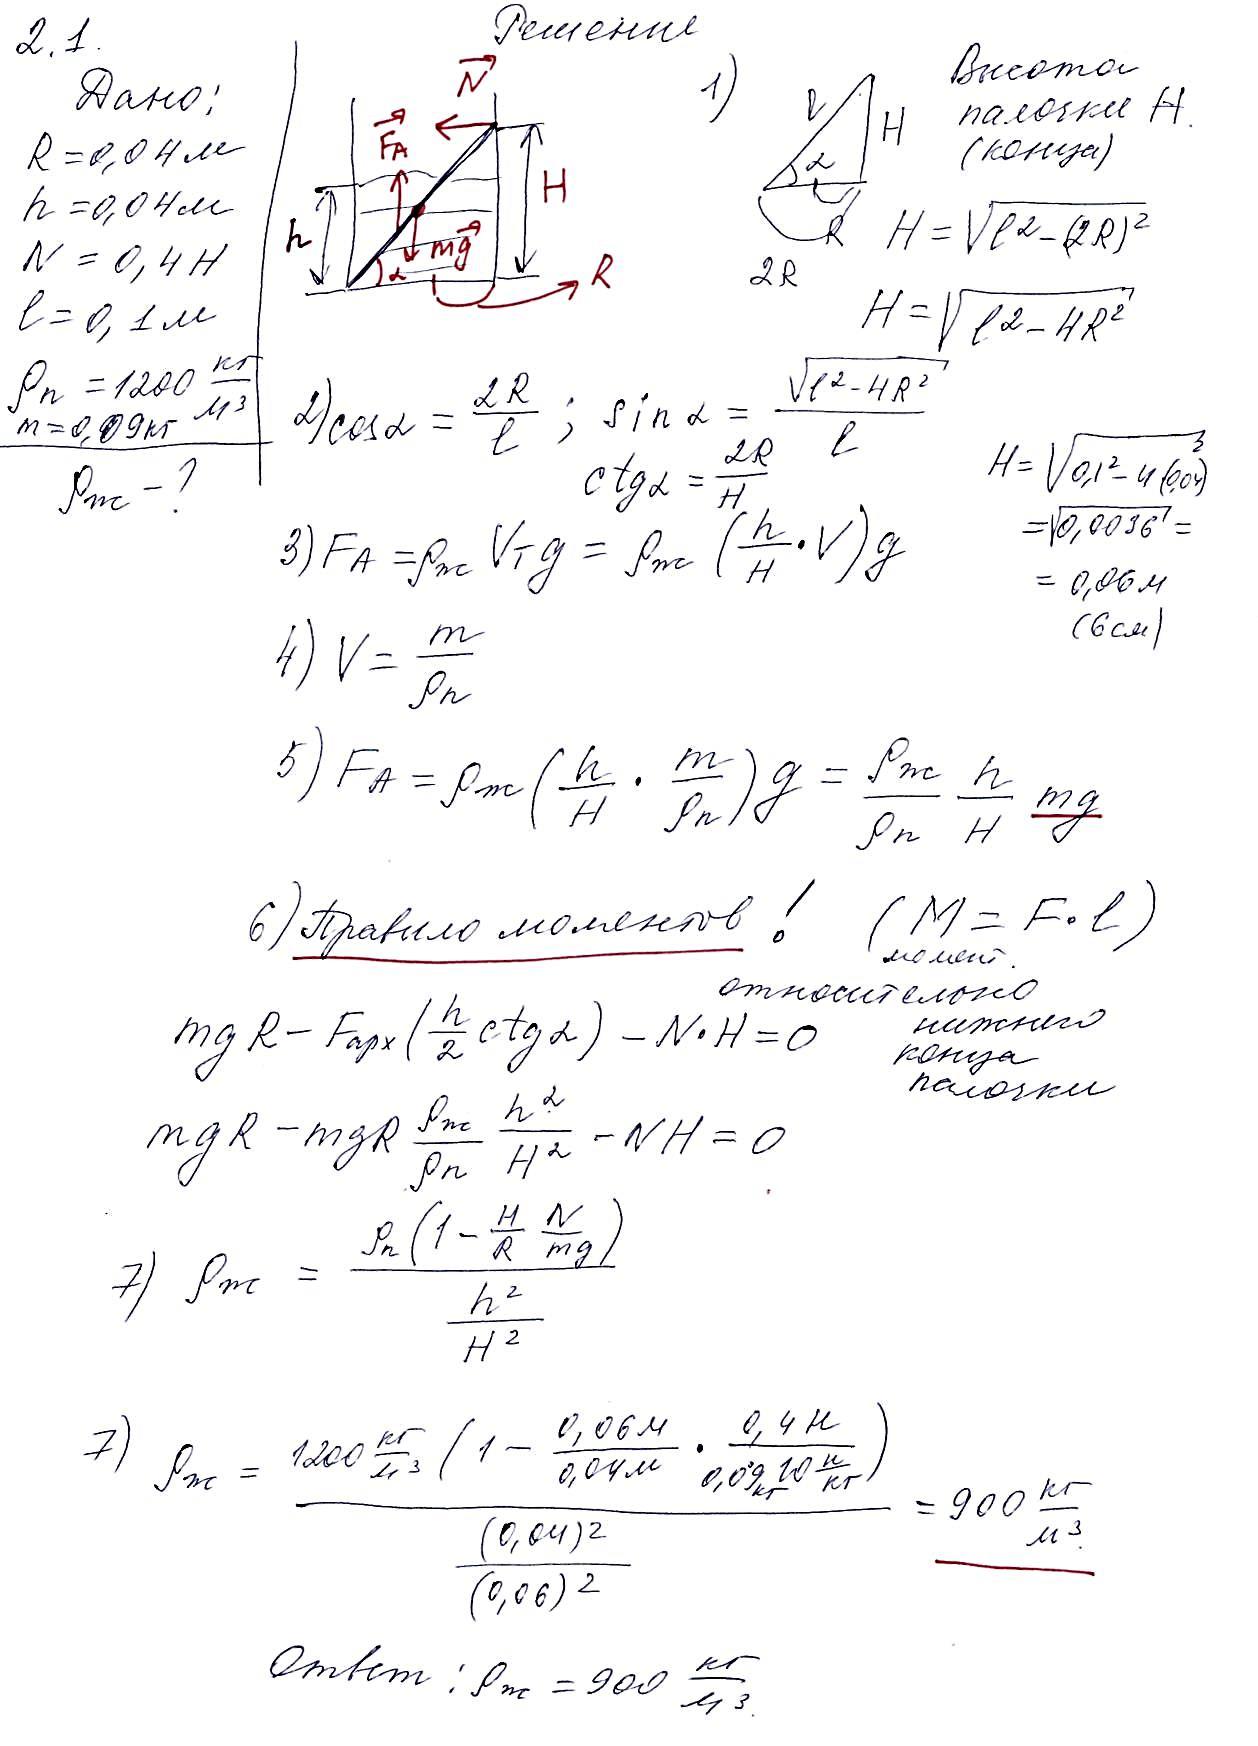 2.1.
Решение
Дано:
R = 0,04 м
h = 0,04 м
N = 0,4 Н
l = 0,1 м
ρп = 1200 кг/м³
m = 0,09 кг
ρж - ?
N
FA
h
mg
α
H
R
1)
H
α
R
2R
Высота
палочки H.
(конца)
H = √(l² - (2R)²)
H = √(l² - 4R²)
2) cosα = 2R/l ; sinα = √(l² - 4R²)/l
ctgα = 2R/H
H = √(0,1² - 4(0,04)²)
= √0,0036 =
= 0,06 м
(6 см)
3) FA = ρж Vт g = ρж (h/H · V) g
4) V = m/ρп
5) FA = ρж (h/H · m/ρп) g = ρж/ρп h/H mg
6) Правило моментов! (M = F · l)
момент.
относительно
нижнего
конца
палочки
mgR - Fарх (h/2 ctgα) - N · H = 0
mgR - mgR ρж/ρп h²/H² - NH = 0
7) ρж = ρп (1 - H/R N/mg) / (h²/H²)
7) ρж = 1200 кг/м³ (1 - 0,06 м/0,04 м · 0,4 Н/0,09 кг 10 н/кг) / ((0,04)²/(0,06)²) = 900 кг/м³.
Ответ: ρж = 900 кг/м³.